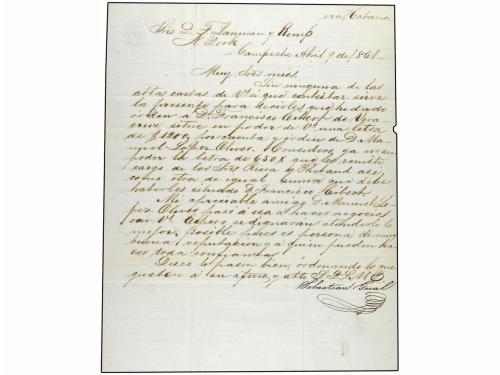 via Habana
Sres D. F. Lanman y Kemp
N. York
Campeche Abril 9 de 1861
Muy Sres mios.
Sin ninguna de las
aptas cartas de Vs a que contestar sirve
la presente para decirles que he dado
orden a Dn Francisco de Vera
cruz situe en poder de Vs una letra
de $1200, por cuenta y orden de D. Ma
nuel Lopez Oliver. Considero ya en su
poder la letra de 650 que les remiti
cargo de los Sres Riera y Thebaud asi
como otra de igual suma que debe
haberles situado D. Francisco Ribert
Mi apreciable amigo D. Manuel Lo
pez Oliver pasa a esa a hacer negocios
con Vs. se dignaran atenderlo lo
mejor posible pues es persona de muy
buena reputacion y a quien pueden ha
cer toda confianza.
Deseo lo pasen bien, ordenando lo que
gusten a su afmo. y atto S. S. Q. B. S. M.
Sebastian Gual